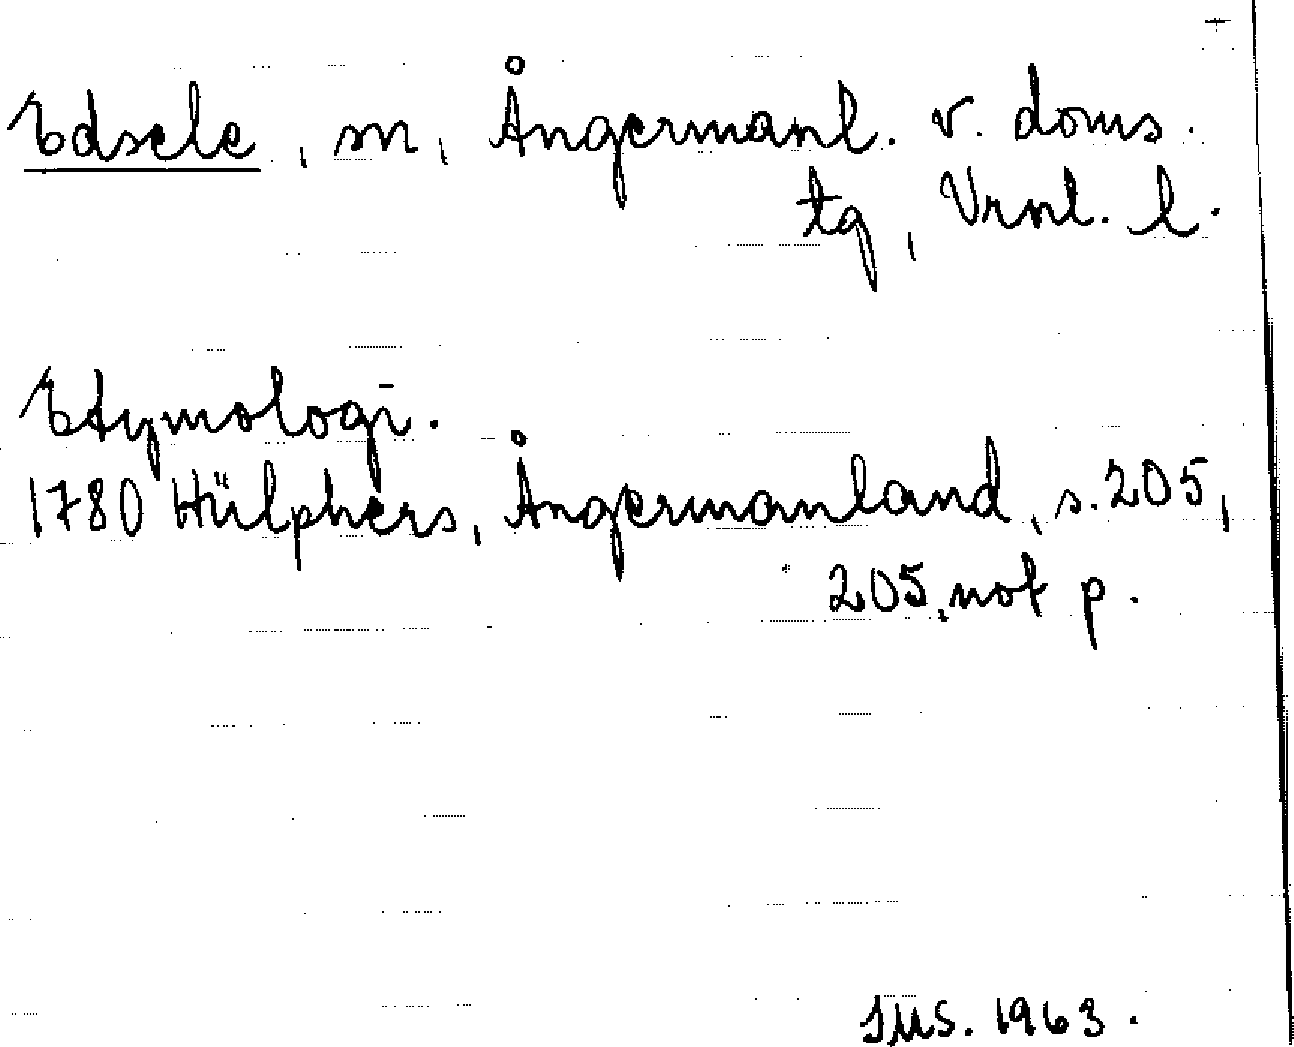 Edsele, sn, Ångermanl. v. doms.
tg, Vrnl. l.
Etymologi.
1780 Hülphers, Ångermanland, s. 205,
205, not p.
JMS. 1963.